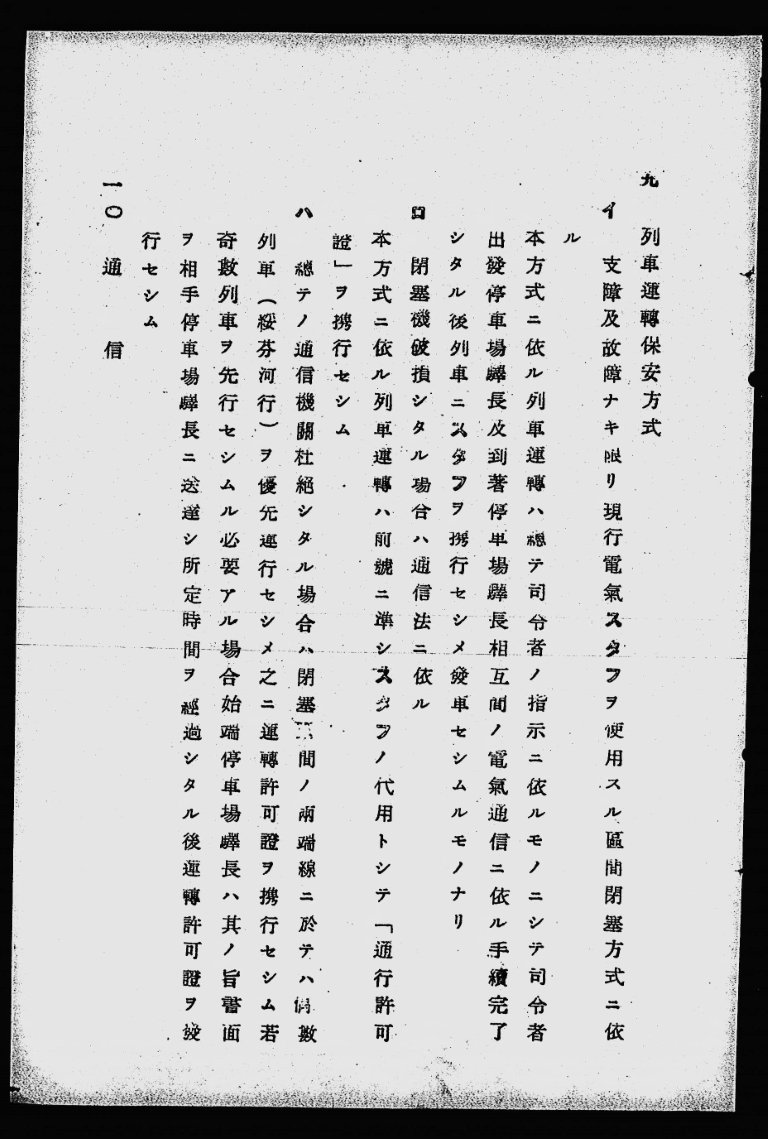 九　列車運轉保安方式
イ　支障及故障ナキ限リ現行電氣スタフヲ使用スル區間閉塞方式ニ依
ル
本方式ニ依ル列車運轉ハ總テ司令者ノ指示ニ依ルモノニシテ司令者
出發停車場驛長及到著停車場驛長相互間ノ電氣通信ニ依ル手續完了
シタル後列車ニスタフヲ携行セシメ發車セシムルモノナリ
ロ　閉塞機破損シタル場合ハ通信法ニ依ル
本方式ニ依ル列車運轉ハ前號ニ準シスタフノ代用トシテ「通行許可
證」ヲ携行セシム
ハ　總テノ通信機關杜絕シタル場合ハ閉塞區間ノ兩端線ニ於テハ偶數
列車（綏芬河行）ヲ優先運行セシメ之ニ運轉許可證ヲ携行セシム若
奇數列車ヲ先行セシムル必要アル場合始端停車場驛長ハ其ノ旨書面
ヲ相手停車場驛長ニ送達シ所定時間ヲ經過シタル後運轉許可證ヲ發
行セシム
一〇　通信